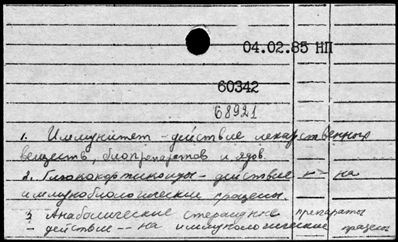 04.02.85 НП
60342
68921
1. Иммунитет - действие лекарственных
веществ, биопрепаратов и ядов.
2. Глюкокортикоиды - действие -"- на
иммунобиологические процессы.
3. Анаболические стероидные препараты
- действие -"- на иммунологические процессы